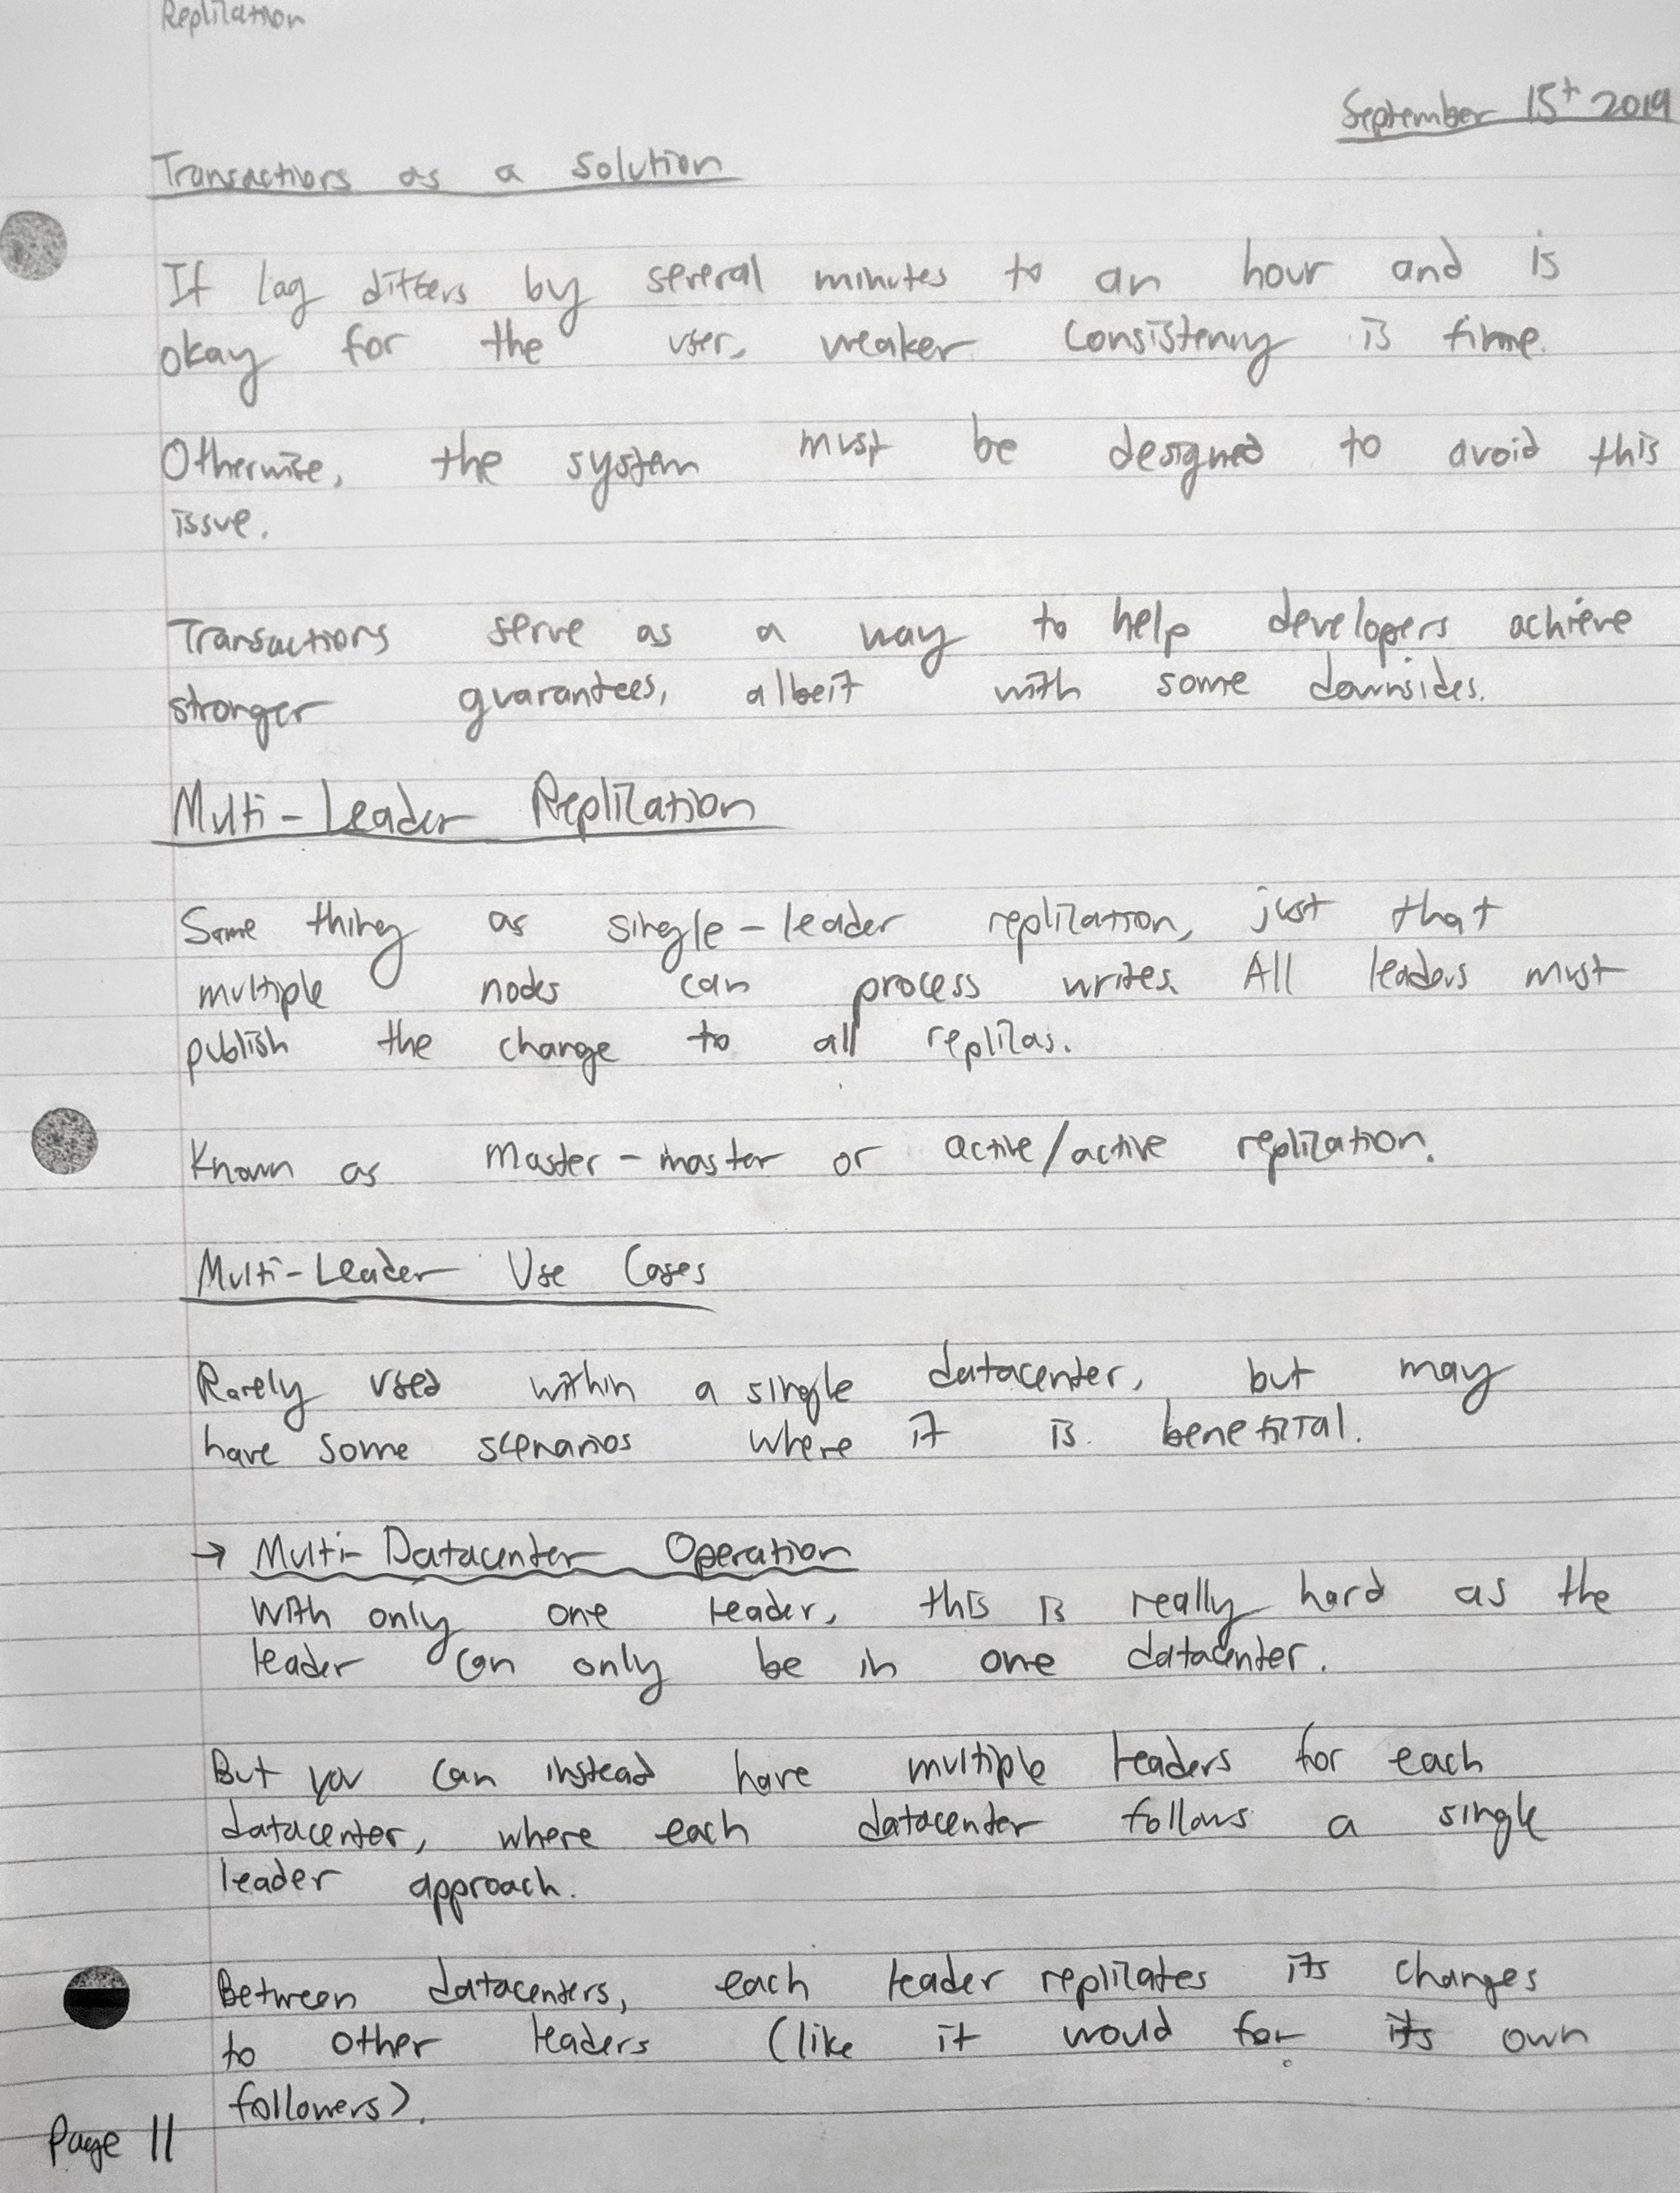 Replication
September 15th 2019
Transactions as a Solution
If lag differs by several minutes to an hour and is
okay for the user, weaker consistency is fine.
Otherwise, the system must be designed to avoid this
issue.
Transactions serve as a way to help developers achieve
stronger guarantees, albeit with some downsides.
Multi-Leader Replication
Same thing as single-leader replication, just that
multiple nodes can process writes. All leaders must
publish the change to all replicas.
Known as master-master or active/active replication.
Multi-Leader Use Cases
Rarely used within a single datacenter, but may
have some scenarios where it is beneficial.
→ Multi-Datacenter Operation
With only one leader, this is really hard as the
leader can only be in one datacenter.
But you can instead have multiple leaders for each
datacenter, where each datacenter follows a single
leader approach.
Between datacenters, each leader replicates its changes
to other leaders (like it would for its own
followers).
Page 11